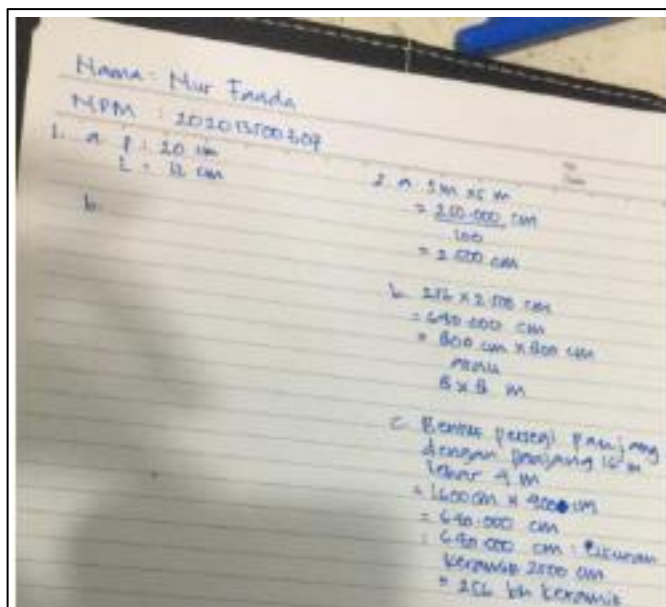 Nama : Nur Fanda
NPM : 202013500307
1. a p : 20 cm
L = 12 cm
b.
2. a. 5m x 5 m
= 250.000 cm
100
= 2.500 cm
b. 256 x 2.500 cm
= 640.000 cm
= 800 cm x 800 cm
atau
8 x 8 m
c. Bentuk persegi panjang
dengan panjang 16 m
lebar 4 m
= 1600 cm x 400 cm
= 640.000 cm
= 640.000 cm : ukuran
keramik 2500 cm
= 256 bh keramik